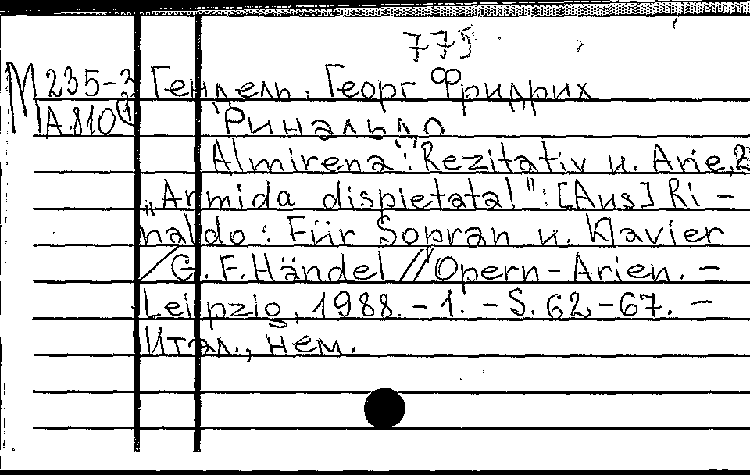 775
M 235-3 Гендель, Георг Фридрих
IA810① Ринальдо
Almirena: Rezitativ u. Arie, 2
„Armida dispietata!": [Aus] Ri-
naldo: Für Sopran u. Klavier
/ G. F. Händel // Opern-Arien. –
Leipzig, 1988. – 1. – S. 62-67. –
Итал., нем.